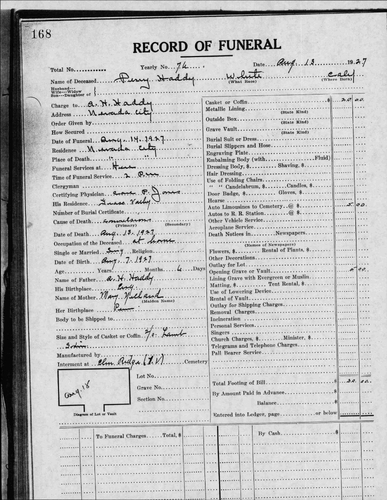 168
RECORD OF FUNERAL
Total No. Yearly No. 76 Date Aug. 13 1927
Name of Deceased Perry Haddy White Calif
Husband—
Wife—Widow
Son—Daughter of (What Race) (Where Born)
Charge to A. H. Haddy
Address Nevada City
Order Given by
How Secured
Date of Funeral Aug. 14, 1927
Residence Nevada City
Place of Death " "
Funeral Services at Here
Time of Funeral Service 2 P.M.
Clergyman
Certifying Physician Jones
His Residence Grass Valley
Number of Burial Certificate
Cause of Death
(Primary) (Secondary)
Date of Death Aug. 13, 1927
Occupation of the Deceased at home
Single or Married Sing Religion
Date of Birth Aug. 7, 1927
Age, Years, Months, 6 Days
Name of Father A. H. Haddy
His Birthplace Eng
Name of Mother May
(Maiden Name)
Her Birthplace
Body to be Shipped to
Size and Style of Casket or Coffin 2/0 Lamb
Manufactured by
Interment at Elm Ridge (G.V) Cemetery
Lot No.
Grave No.
Section No.
Aug 18
Diagram of Lot or Vault
Casket or Coffin $ 20 00
Metallic Lining
(State Kind)
Outside Box
(State Kind)
Grave Vault
(State Kind)
Burial Suit or Dress
Burial Slippers and Hose
Engraving Plate
Embalming Body (with Fluid)
Dressing Body, $ Shaving, $
Hair Dressing
Use of Folding Chairs
" " Candelabrum, $ Candles, $
Door Badge, $ Gloves, $
Hearse
Auto Limousines to Cemetery @ $ 5 00
Autos to R. R. Station @ $
Other Vehicle Service
Aeroplane Service
Death Notices in Newspapers
(Names of Newspapers)
Flowers, $ Rental of Plants, $
Other Decorations
Outlay for Lot
Opening Grave or Vault 5 00
Lining Grave with Evergreen or Muslin
Matting, $ Tent Rental, $
Use of Lowering Device
Rental of Vault
Outlay for Shipping Charges
Removal Charges
Incineration
Personal Services
Singers
Church Charges, $ Minister, $
Telegrams and Telephone Charges
Pall Bearer Service
Total Footing of Bill $ 30 00
By Amount Paid in Advance $
Balance $
Entered into Ledger, page or below
To Funeral Charges Total, $
By Cash $